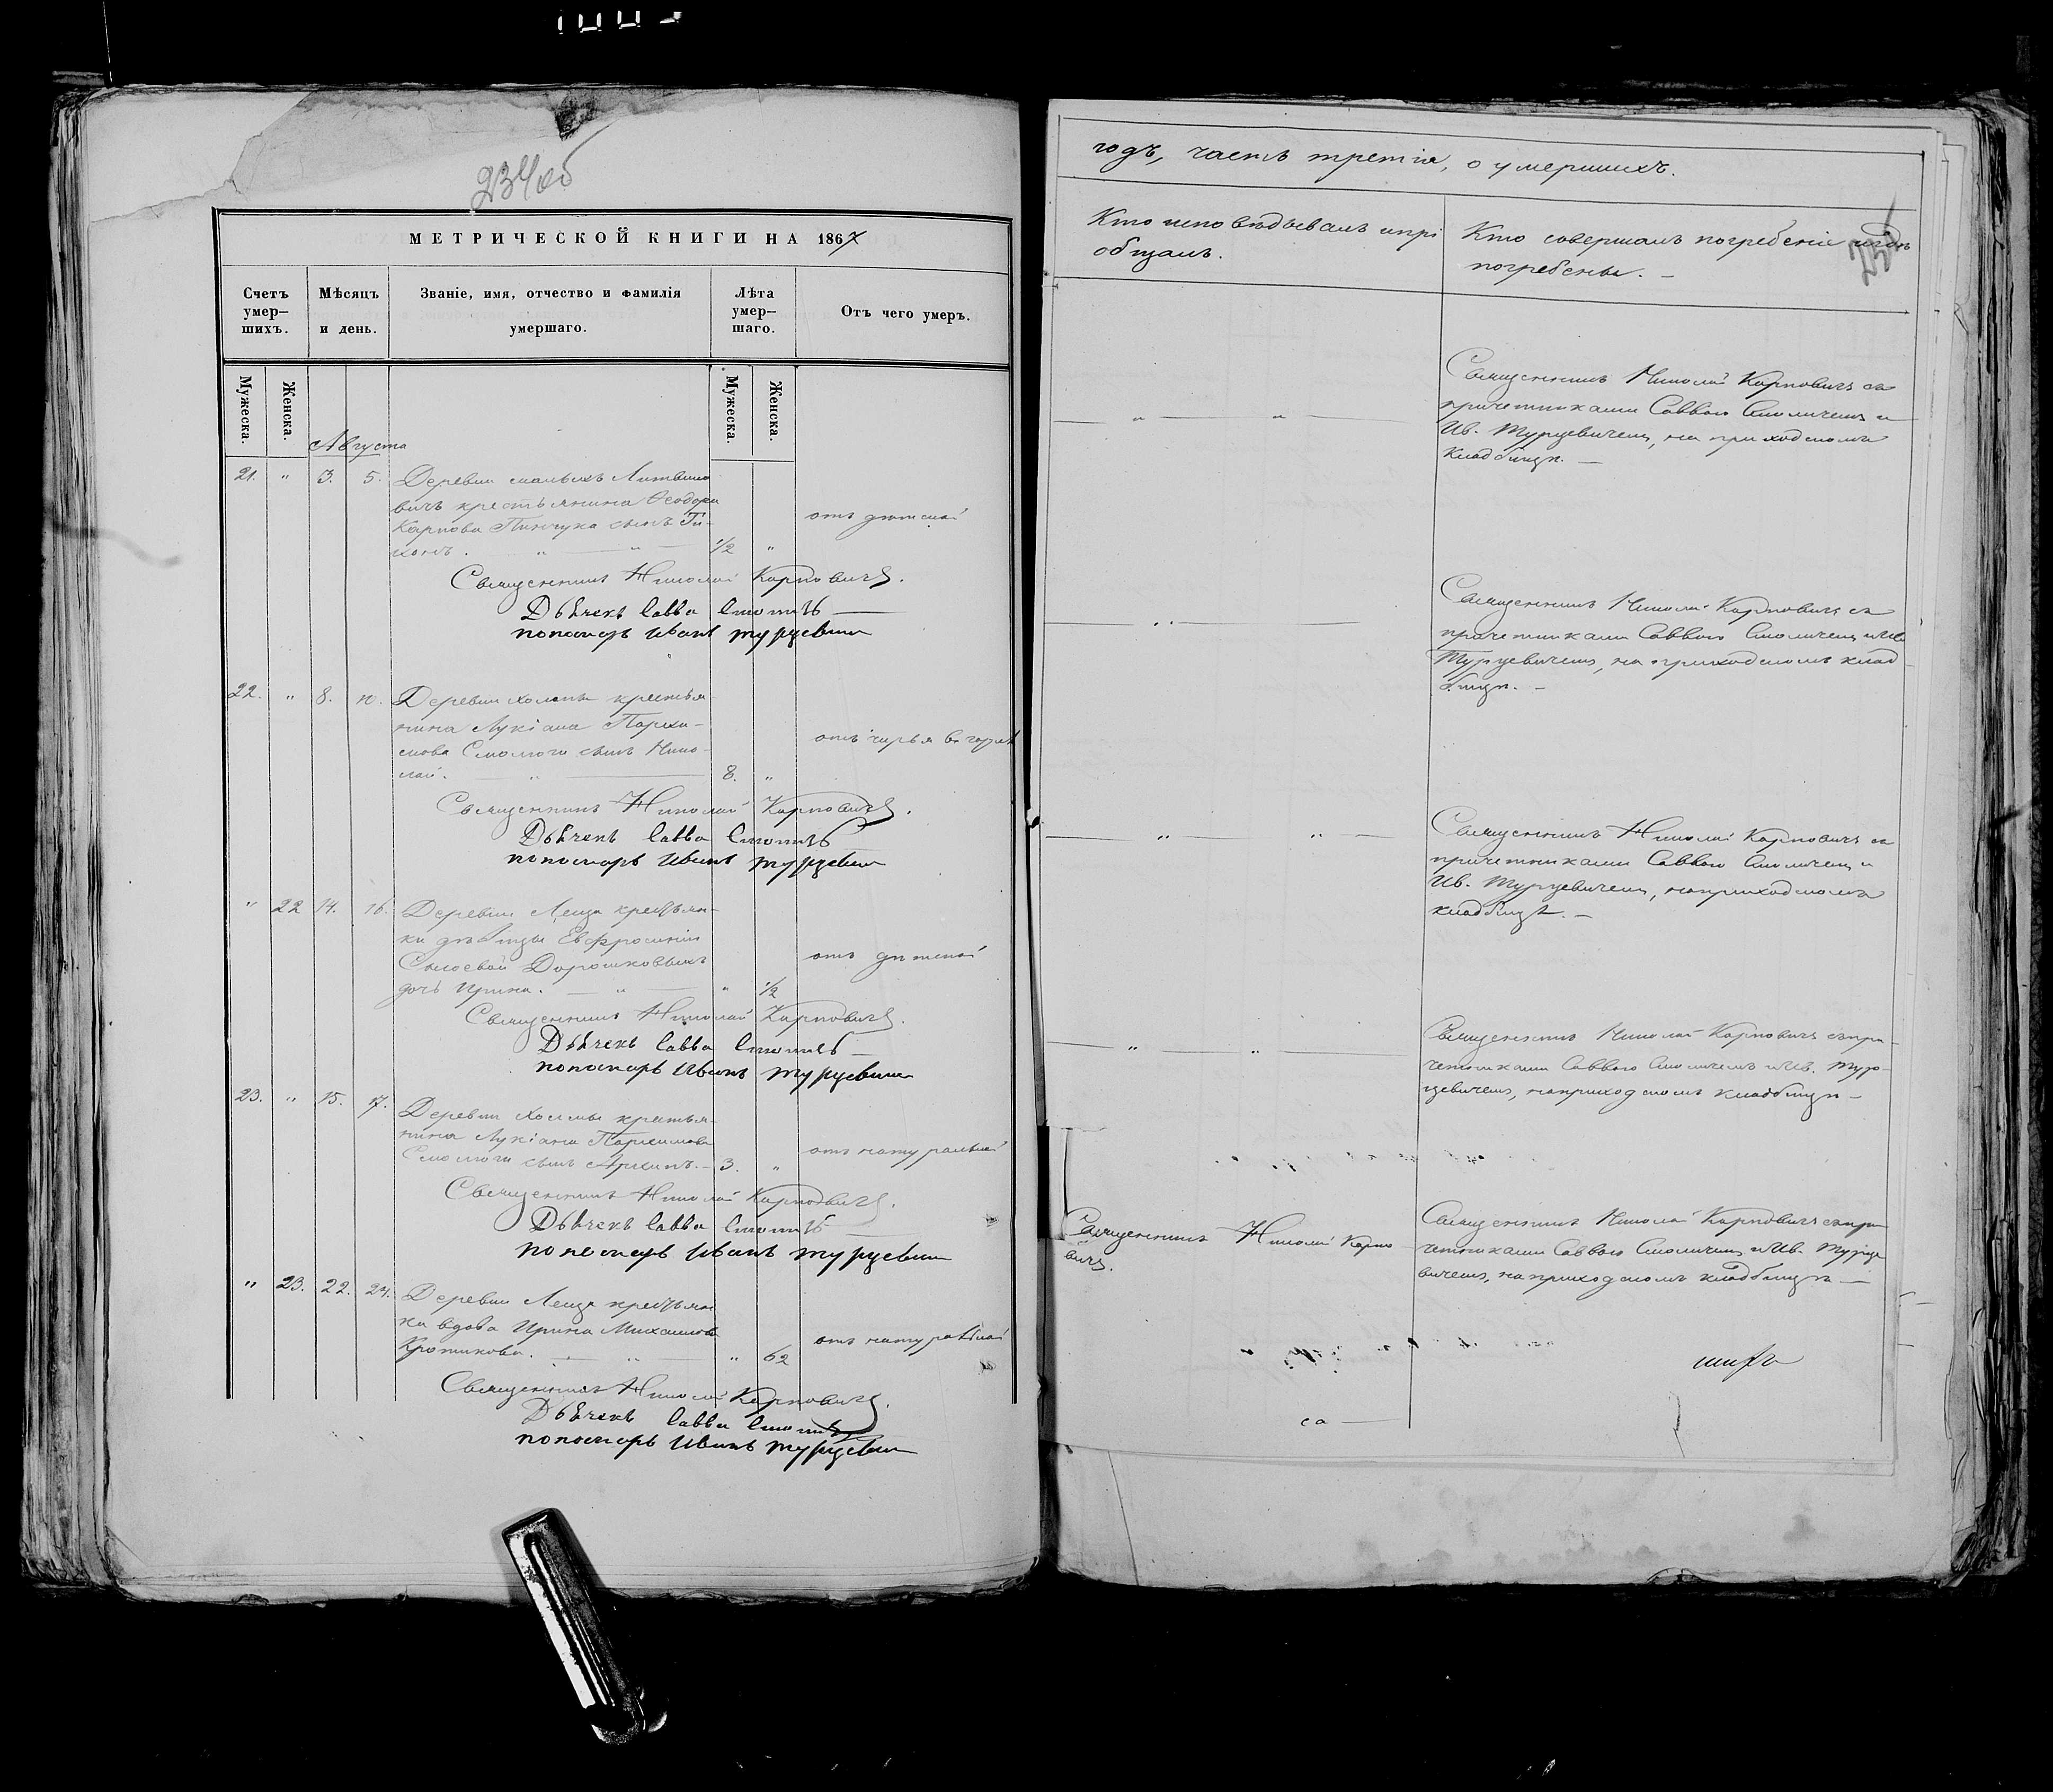 234 об
МЕТРИЧЕСКОЙ КНИГИ НА 1867
Счетъ умер— шихъ.
Мѣсяцъ и день.
Званіе, имя, отчество и фамилія умершаго.
Лѣта умер— шаго.
Отъ чего умеръ.
Мужеска.
Женска.
Мужеска.
Женска.
Августа
21. " 3. 5. Деревни малыхъ Литвино
вичъ крестьянина Ѳеодора
Карпова Пинчука сынъ Ти-
хонъ. " " 1/2 "
отъ дѣтской
Священникъ Николай Карповичъ.
Дьячекъ Савва Смоличъ
пономарь Иванъ Турцевич
22. " 8. 10. Деревни Холмы крестья-
нина Лукіана Пархи-
мова Смолюги сынъ Нико-
лай. " 8. "
отъ чирья в горлѣ
Священникъ Николай Карповичъ.
Дьячекъ Савва Смоличъ
пономарь Иванъ Турцевич
" 22 14. 16. Деревни крестьян-
ки дѣвицы Евфросиніи
Дорошковыхъ
дочь Ирина. " " 1/2
отъ дѣтской
Священникъ Николай Карповичъ.
Дьячекъ Савва Смоличъ
пономарь Иванъ Турцевич
23. " 15. 17. Деревни Холмы крестья-
нина Лукіана Пархимова
Смолюги сынъ Архипъ. 3. "
отъ натуральной
Священникъ Николай Карповичъ.
Дьячекъ Савва Смоличъ
пономарь Иванъ Турцевич
" 23. 22. 24. Деревни крестьян
ка вдова Ирина Михаилова
Кротикова. " " 62
отъ натуральной
Священникъ Николай Карповичъ.
Дьячекъ Савва Смоличъ
пономарь Иванъ Турцевич
годъ, часть третія, о умершихъ.
Кто исповѣдывалъ и прі
общалъ.
Кто совершалъ погребеніе и гдѣ
погребены. —
235
" "
Священникъ Николай Карповичъ съ
причетниками Саввою Смоличемъ и
Ив. Турцевичемъ, на приходскомъ
кладбищѣ. —
" "
Священникъ Николай Карповичъ съ
причетниками Саввою Смоличемъ и Ив.
Турцевичемъ, на приходскомъ клад
бищѣ. —
" "
Священникъ Николай Карповичъ съ
причетниками Саввою Смоличемъ и
Ив. Турцевичемъ, на приходскомъ
кладбищѣ. —
" "
Священникъ Николай Карповичъ съ при-
четниками Саввою Смоличемъ и Ив. Тур-
цевичемъ, на приходскомъ кладбищѣ —
Священникъ Николай Карпо
вичъ.
Священникъ Николай Карповичъ съ при
четниками Саввою Смоличемъ и Ив. Турце
вичемъ, на приходскомъ кладбищѣ —
са